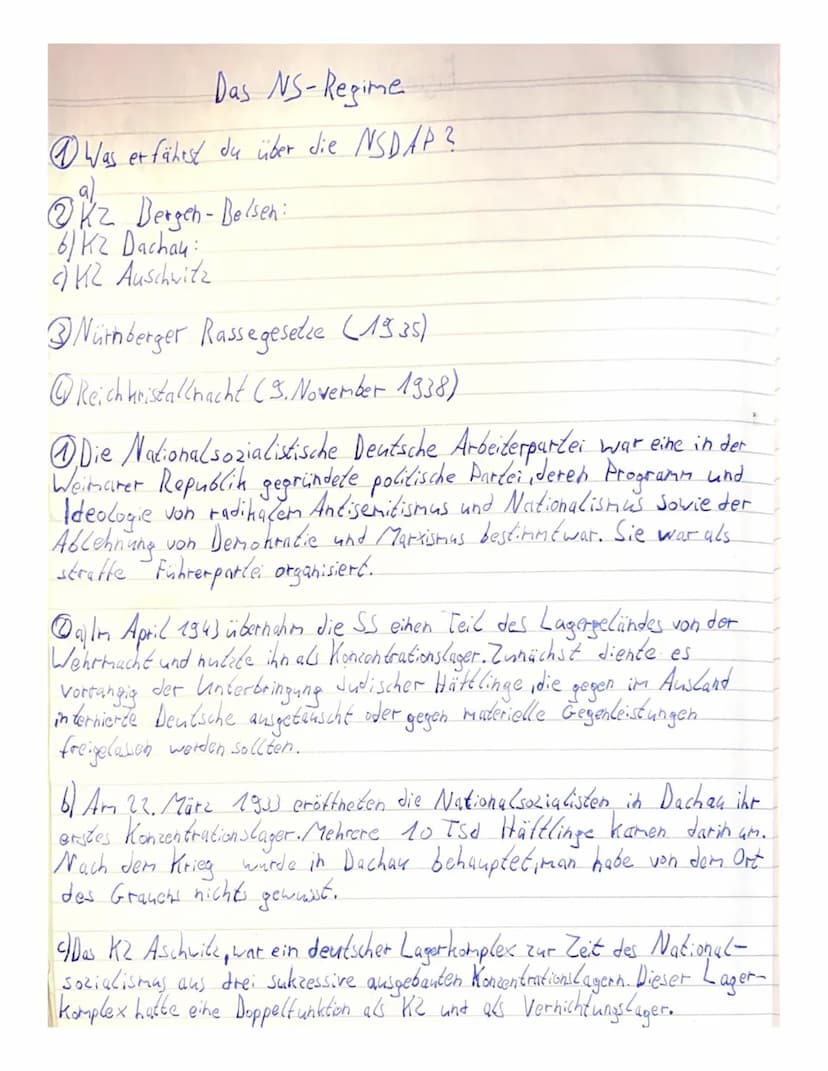 Das NS-Regime
① Was erfährst du über die NSDAP?
a)
② KZ Bergen-Belsen:
b) KZ Dachau:
c) KZ Auschwitz
③ Nürnberger Rassegesetze (1935)
④ Reichkristallnacht (9. November 1938)
① Die Nationalsozialistische Deutsche Arbeiterpartei war eine in der
Weimarer Republik gegründete politische Partei, deren Programm und
Ideologie von radikalem Antisemitismus und Nationalismus sowie der
Ablehnung von Demokratie und Marxismus bestimmt war. Sie war als
straffe Führerpartei organisiert.
② a) Im April 1943 übernahm die SS einen Teil des Lagergeländes von der
Wehrmacht und nutzte ihn als Konzentrationslager. Zunächst diente es
vorrangig der Unterbringung Jüdischer Häftlinge, die gegen im Ausland
internierte Deutsche ausgetauscht oder gegen materielle Gegenleistungen
freigelassen werden sollten.
b) Am 22. März 1933 eröffneten die Nationalsozialisten in Dachau ihr
erstes Konzentrationslager. Mehrere 10 Tsd Häftlinge kamen darin um.
Nach dem Krieg wurde in Dachau behauptet, man habe von dem Ort
des Grauens nichts gewusst.
c) Das KZ Aschwitz, war ein deutscher Lagerkomplex zur Zeit des National-
sozialismus aus drei sukzessive ausgebauten Konzentrationslagern. Dieser Lager-
komplex hatte eine Doppelfunktion als KZ und als Vernichtungslager.